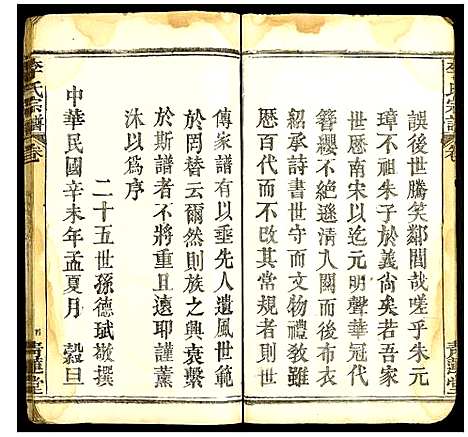 李氏宗譜
卷
誤後世騰笑鄰閭哉嗟乎朱元
璋不祖朱子於義尚矣若吾家
世歷南宋以迄元明聲華冠代
簪纓不絕遜清入關而布衣
紹承詩書世守而文物禮教雖
歷百代而不改其常規者歟
傳家譜有以垂先人遺風世範
於罔替云爾然則族之興衰繫
於斯譜者不將重且遠耶謹薰
沐以為序
二十五世孫德斌敬撰
中華民國辛未年孟夏月 穀旦
李氏宗譜
卷一
青蓮堂